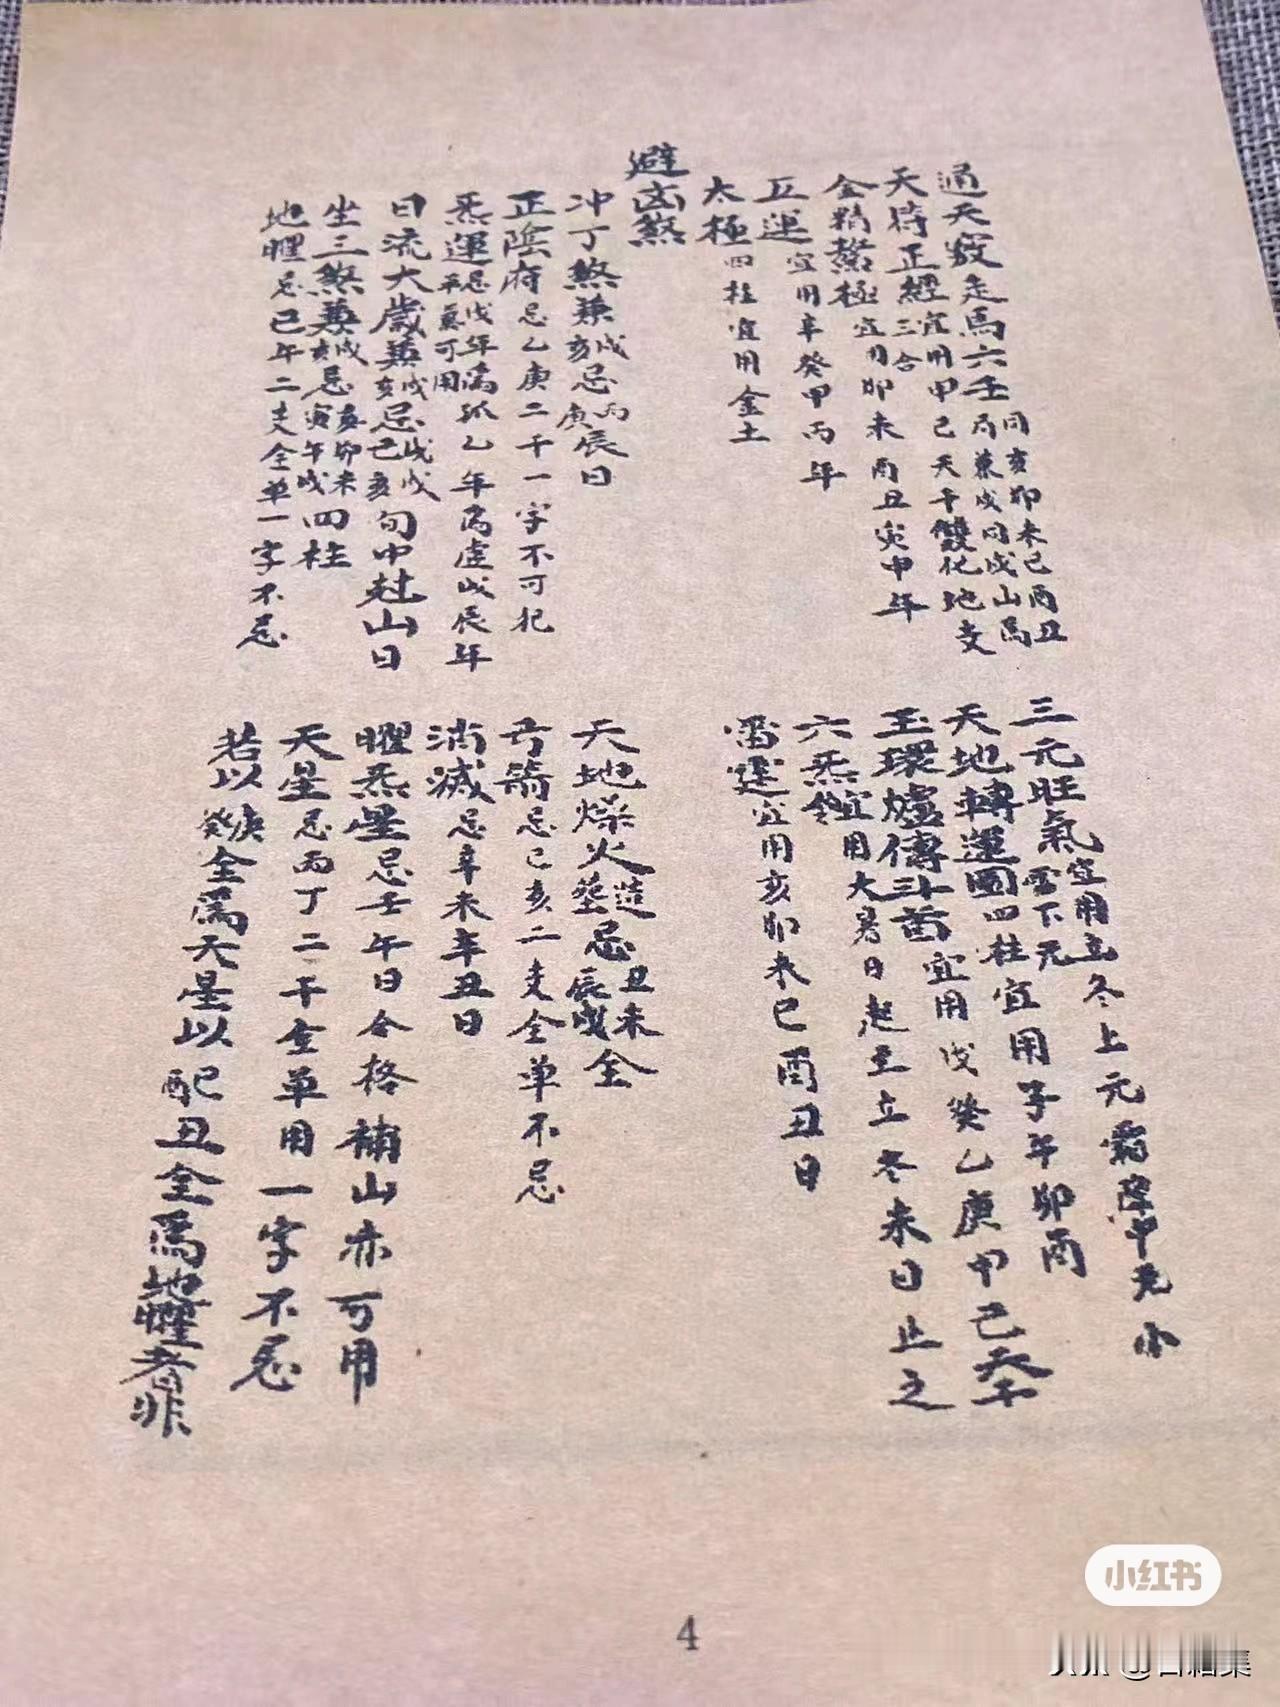 通天竅走馬六壬同亥卯未巳酉丑局兼戍同戍山爲
天時正經三合宜用甲己天干雙化地支
金精鰲極宜用卯未酉丑寅申年
五運宜用辛癸甲丙年
太極四柱宜用金土
避凶煞
冲丁煞兼戍亥忌丙庚辰日
正陰府忌乙庚二干一字不可犯
炁運忌戊年爲孤乙年爲虛戊辰年平氣可用
日流太歲兼戍亥忌戊戍己亥旬中赴山日
坐三煞兼戍亥忌亥卯未寅午戍四柱
地曜忌巳午二支全單一字不忌
三元旺氣宜用立冬上元霜降中元小雪下元
天地轉運圖四柱宜用子午卯酉
玉環爐傳斗首宜用戊癸乙庚甲己天干
六炁宜用大暑日起至立冬未日止之
雷霆宜用亥卯未巳酉丑日
天地燥火造葬忌丑未辰戍全
弓箭忌巳亥二支全單不忌
消滅忌辛未辛丑日
曜炁星忌壬午日合格補山亦可用
天星忌丙丁二干全單用一字不忌
若以庚癸全爲天星以配丑全爲地曜者非
小红书
4